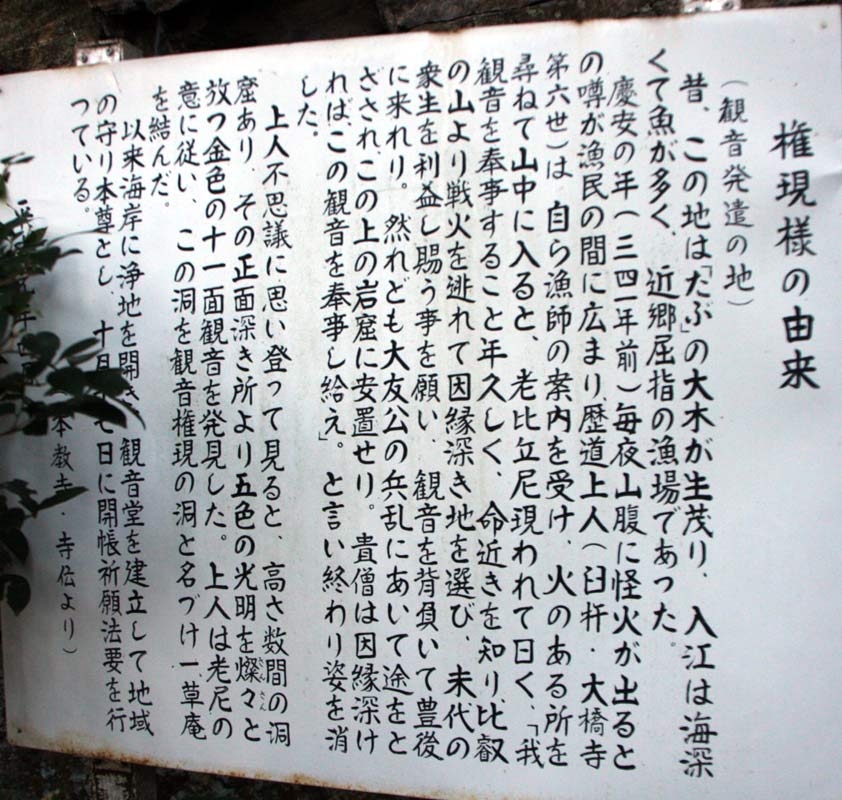 権現様の由来
(観音発遣の地)
昔、この地は「たぶ」の大木が生茂り、入江は海深
くて魚が多く、近郷屈指の漁場であった。
慶安の年(三四一年前)毎夜山腹に怪火が出ると
の噂が漁民の間に広まり、歴道上人(臼杵・大橋寺
第六世)は自ら漁師の案内を受け、火のある所を
尋ねて山中に入ると、老比丘尼現われて曰く、「我
観音を奉事すること年久しく、命近きを知り、比叡
の山より戦火を逃れて因縁深き地を選び、末代の
衆生を利益し賜う事を願い、観音を背負いて豊後
に来れり。然れども大友公の兵乱にあいて途をと
ざされ、この上の岩窟に安置せり。貴僧は因縁深け
れば、この観音を奉事し給え」。と言い終わり姿を消
した。
上人不思議に思い登って見ると、高さ数間の洞
窟あり、その正面深き所より五色の光明を燦々と
さんさん
放つ金色の十一面観音を発見した。上人は老尼の
意に従い、この洞を観音権現の洞と名づけ一草庵
を結んだ。
以来海岸に浄地を開き、観音堂を建立して地域
の守り本尊とし、十月 七日に開帳祈願法要を行
っている。
年
本教寺・寺伝より)